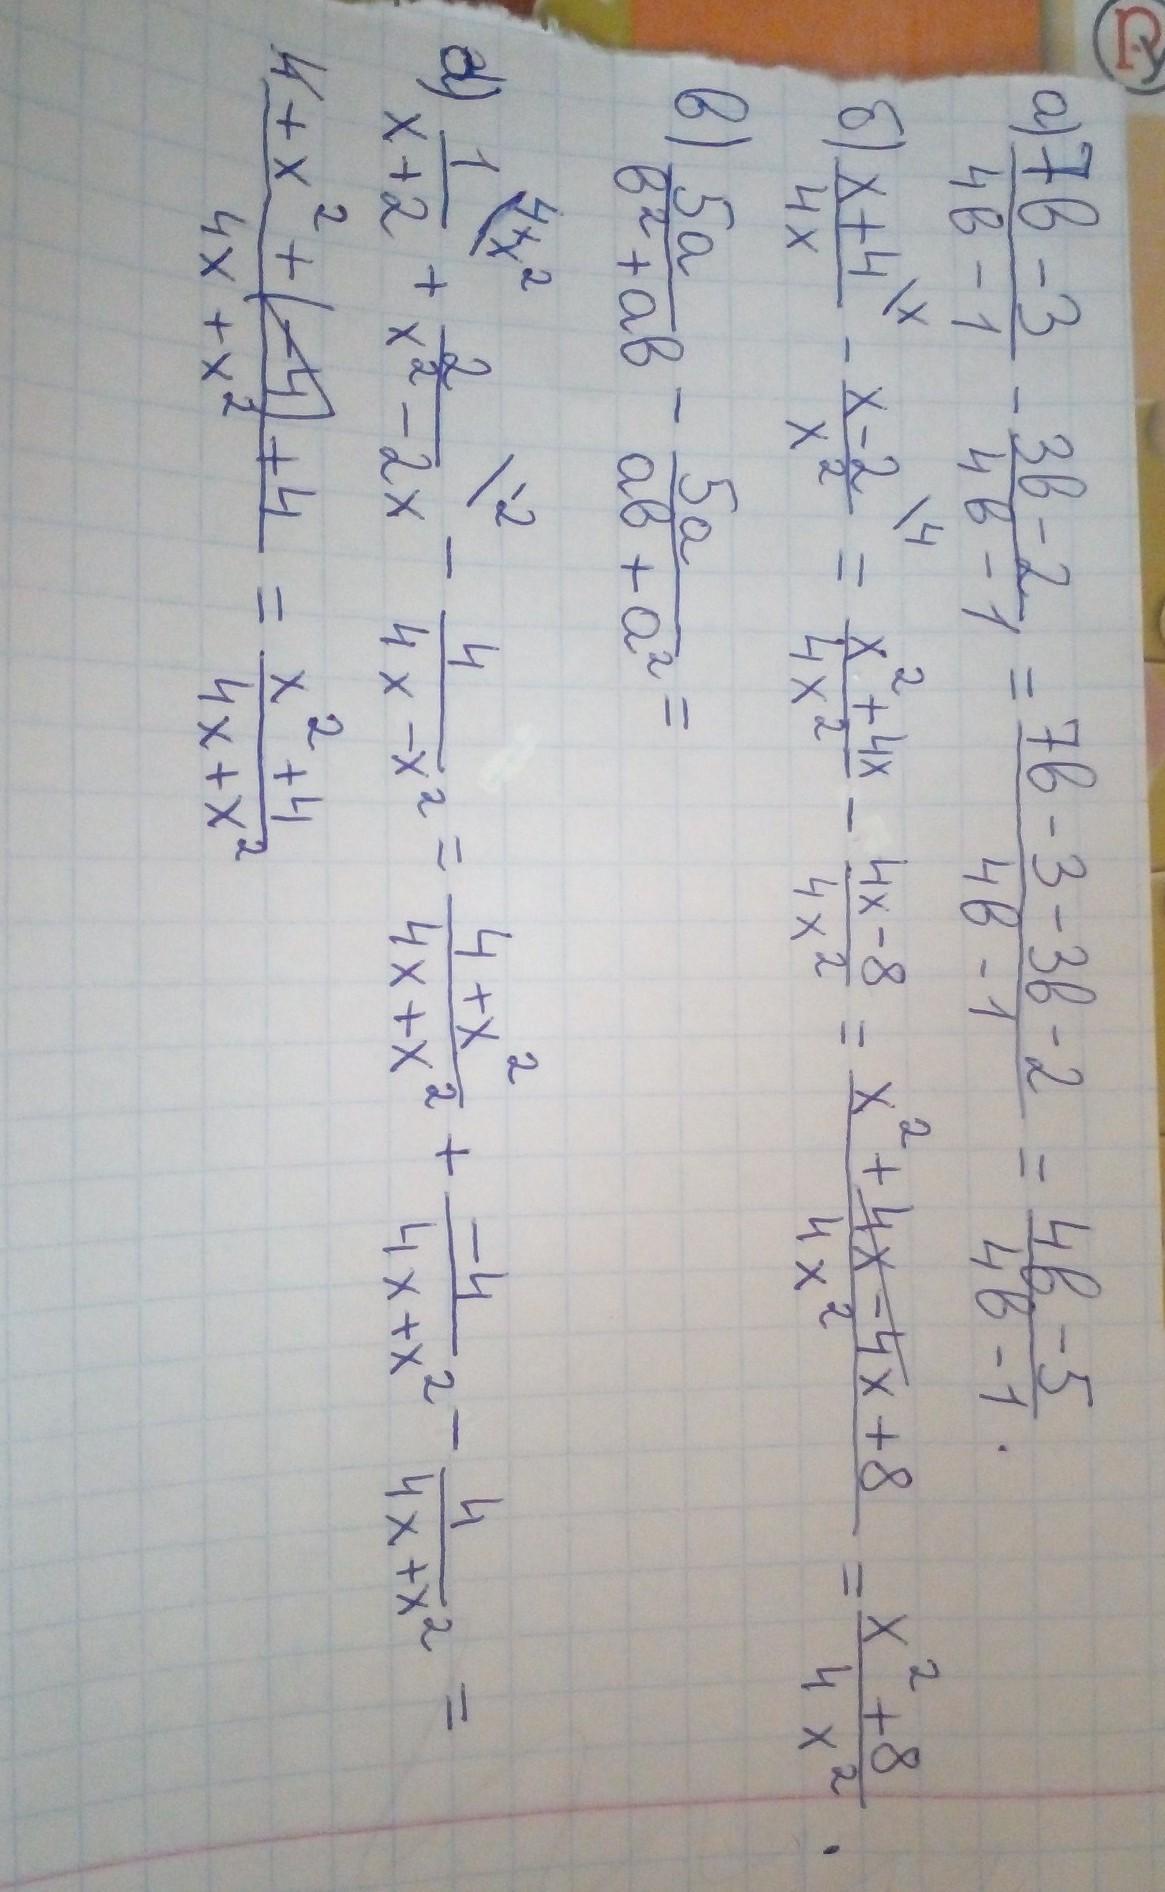 а) (7b - 3)/(4b - 1) - (3b - 2)/(4b - 1) = (7b - 3 - 3b - 2)/(4b - 1) = (4b - 5)/(4b - 1).
б) (x+4)/(4x) \x - (x-2)/(x²) \4 = (x²+4x)/(4x²) - (4x-8)/(4x²) = (x²+4x-4x+8)/(4x²) = (x²+8)/(4x²).
в) 5a/(b²+ab) - 5a/(ab+a²) =
d) 1/(x+2) \4x² + 2/(x²-2x) \-2 - 4/(4x-x²) = (4+x²)/(4x+x²) + (-4)/(4x+x²) - 4/(4x+x²) =
(4+x²+(-4)+4)/(4x+x²) = (x²+4)/(4x+x²)